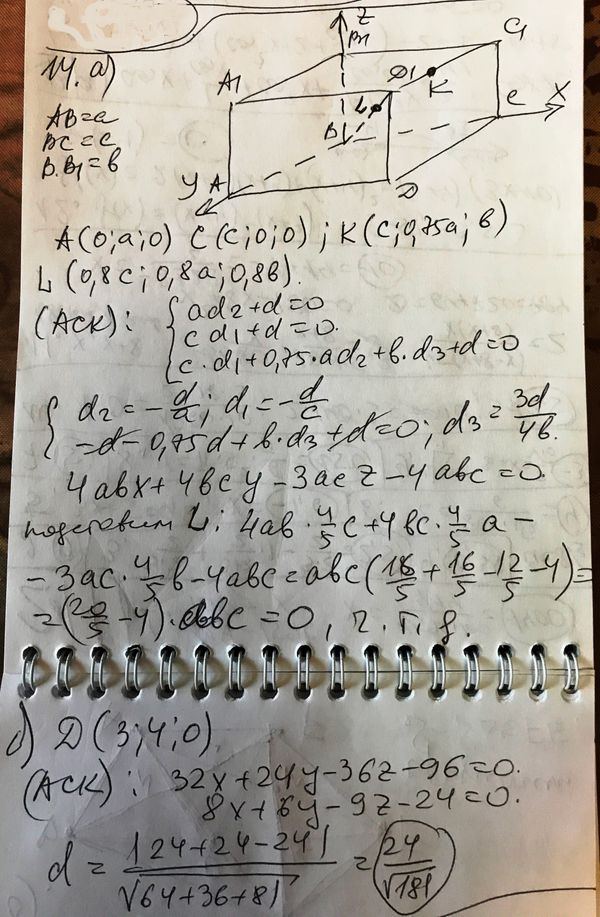 14. а)
AB=a
BC=c
B.B1=b
Z
B1
C1
A1
D1
K
L
B
C
X
Y
A
D
A(0;a;0) C(c;0;0); K(c;0,75a;b)
L(0,8c;0,8a;0,8b).
(ACK): { ad2+d=0
cd1+d=0.
c·d1+0,75·ad2+b·d3+d=0
{ d2=-d/a; d1=-d/c
-d-0,75d+b·d3+d=0; d3=3d/4b.
4abx+4bcy-3acz-4abc=0.
подставим L: 4ab·4/5c+4bc·4/5a-
-3ac·4/5b-4abc=abc(16/5+16/5-12/5-4)=
=(20/5-4)·abc=0, ч.т.д.
с) D(3;4;0)
(ACK): 32x+24y-36z-96=0.
8x+6y-9z-24=0.
d=|24+24-24|/√64+36+81=24/√181